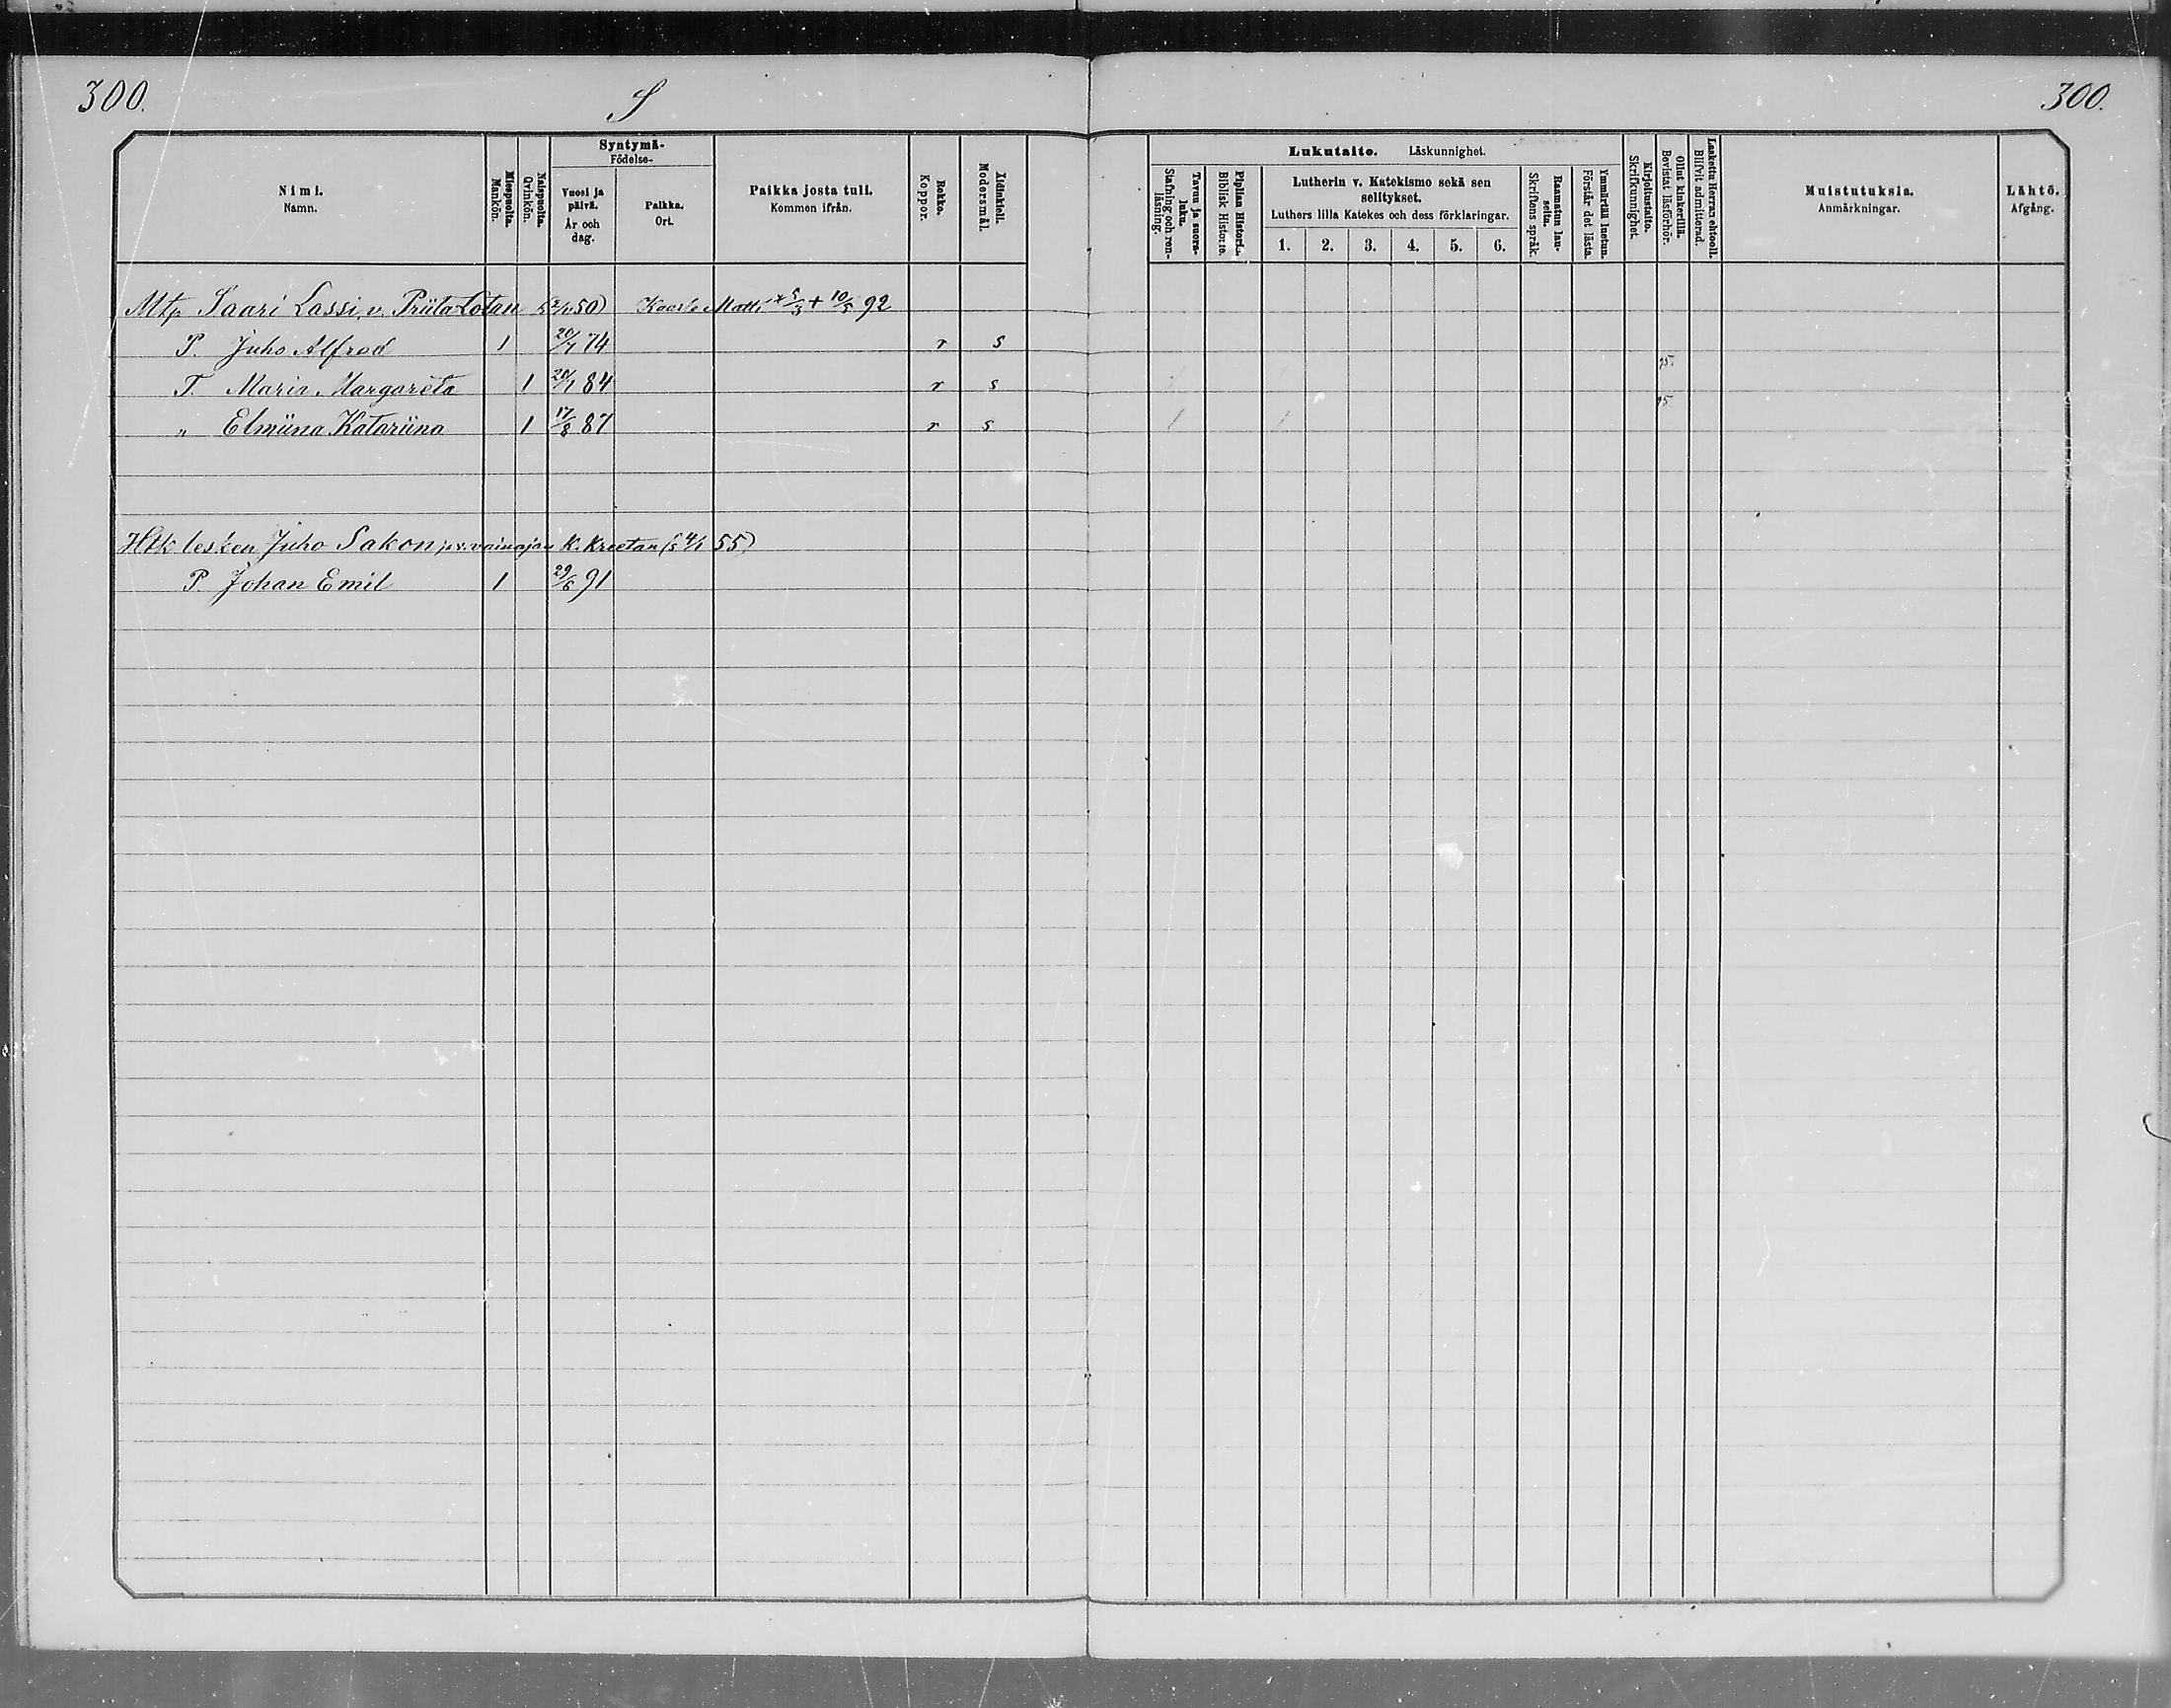 300. S 300.
Nimi. Namn.
Miespuolta. Mankön.
Naispuolta. Qvinkön.
Syntymä- Födelse-
Vuosi ja päivä. År och dag.
Paikka. Ort.
Paikka josta tuli. Kommen ifrån.
Rokko. Koppor.
Äidinkieli. Modersmål.
Lukutaito. Läskunnighet.
Tavu ja suora-luku. Stafning och ren-läsning.
Piplian Historia. Biblisk Historie.
Lutherin v. Katekismo sekä sen selitykset.
Luthers lilla Katekes och dess förklaringar.
1. 2. 3. 4. 5. 6.
Raamatun lauseita. Skriftens språk.
Ymmärtää luetun. Förstår det lästa.
Kirjoitustaito. Skrifkunnighet.
Ollut kinkerillä. Bevistat läsförhör.
Laskettu Herran ehtooll. Blifvit admitterad.
Muistutuksia. Anmärkningar.
Lähtö. Afgång.
Mtp Saari Lassi, v. Priita Lotan 50) Kaarlo Matti * 5/3 + 10/5 92
P. Juho Alfred 1 20/7 74 r s
T. Maria Margareta 1 20/1 84 r s 95.
„ Elmiina Katariina 1 17/8 87 r s 95
Htk lesken Juho Sakon vainajan K. Kreetan (s 4/1 55)
P. Johan Emil 1 29/6 91